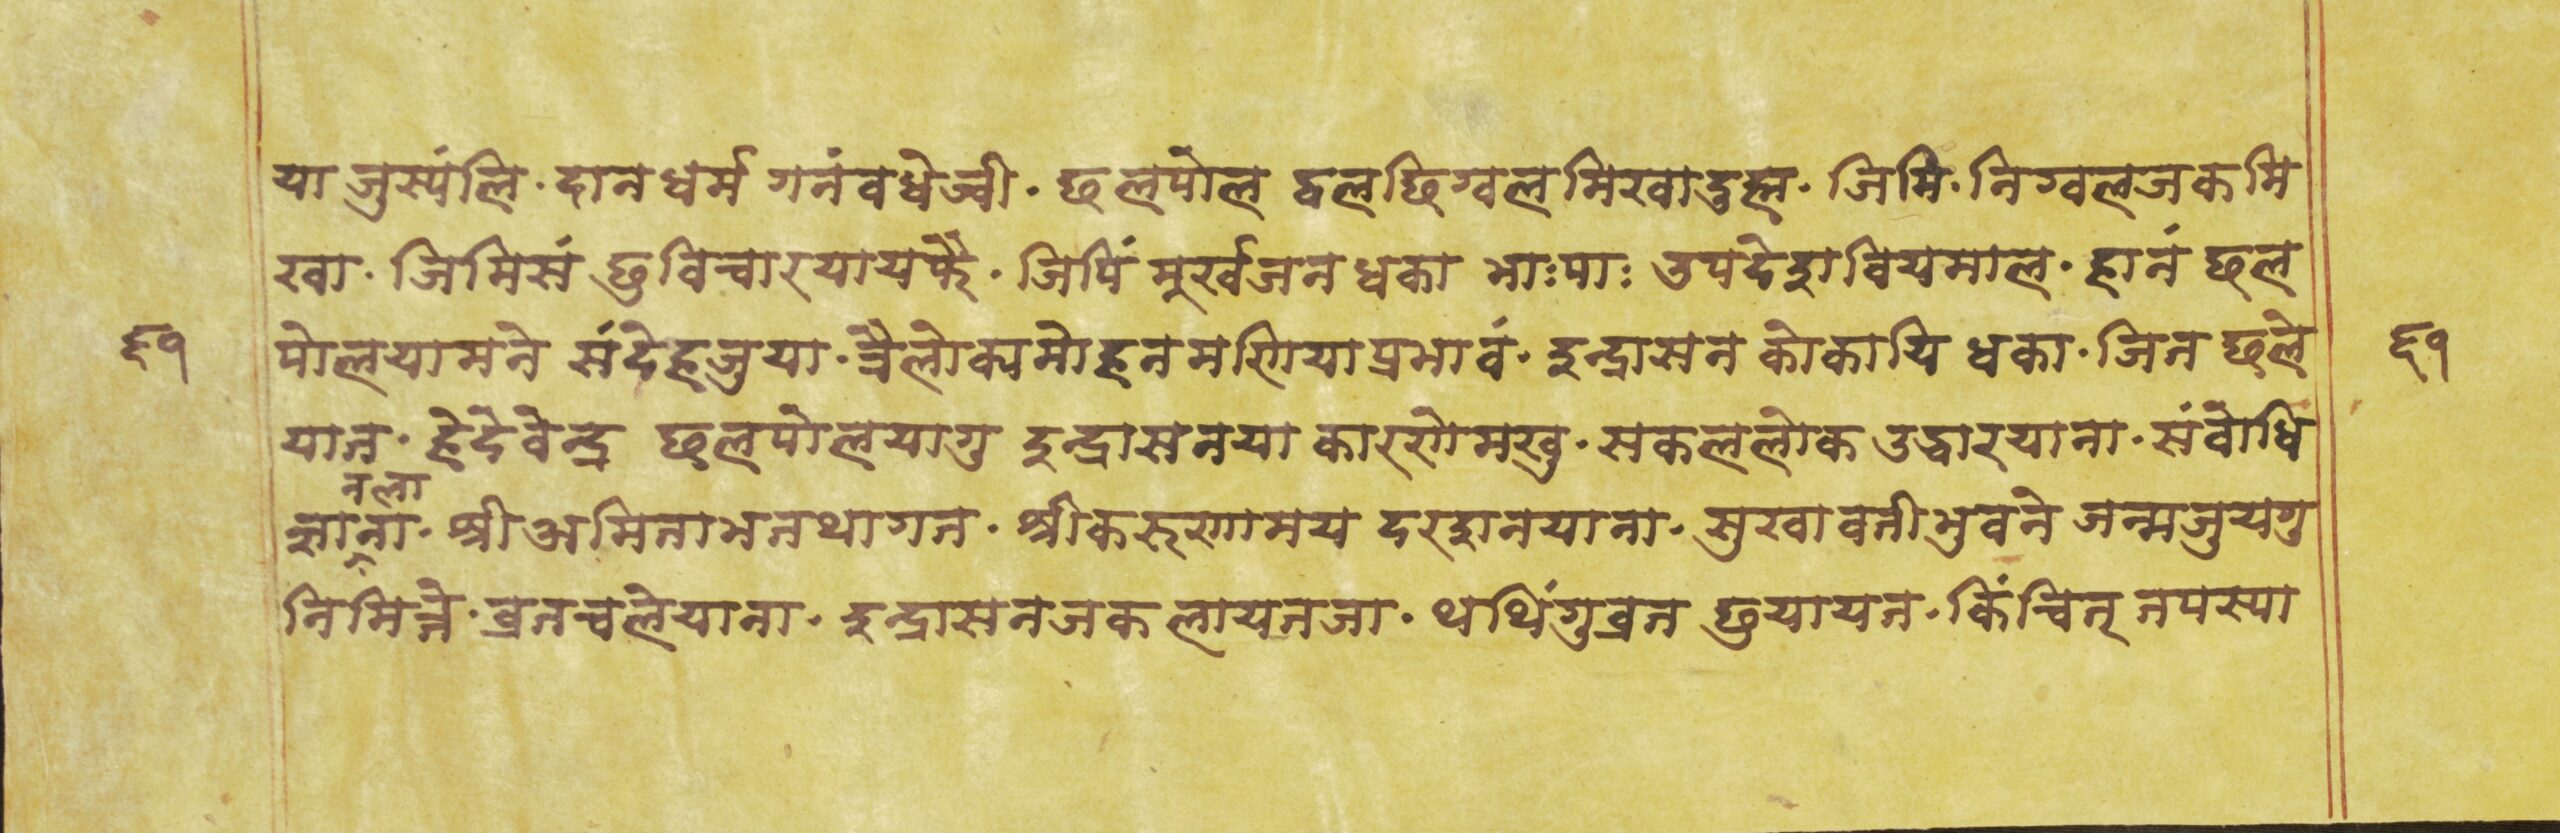 या जुस्यंलि · दान धर्म गनं वधेज्वी · छलपोल द्वलछि ग्वल मिखादुह्म · जिमि · निग्वलजक मि
खा · जिमिसं छु विचारयायफै · जिपिं मूर्खजन धका भाःपाः उपदेश वियमाल · हानं छल
६१ पोलयामने संदेहजुया · त्रैलोक्यमोहनमणिया प्रभावं · इन्द्रासन कोकायि धका · जिन छले
यात · हेदेवेन्द्र छलपोलयागु इन्द्रासनया कारणेमखु · सकललोक उद्धारयाना · संवोधि ६१
नला
ज्ञाना · श्रीअमिताभतथागत · श्रीकरुणामय दरशनयाना · सुखावतीभुवने जन्मजुयगु
निमित्ते · व्रतचलेयाना · इन्द्रासनजक लायतजा · थथिंगुव्रत छुयायत · किंचित् तपस्या